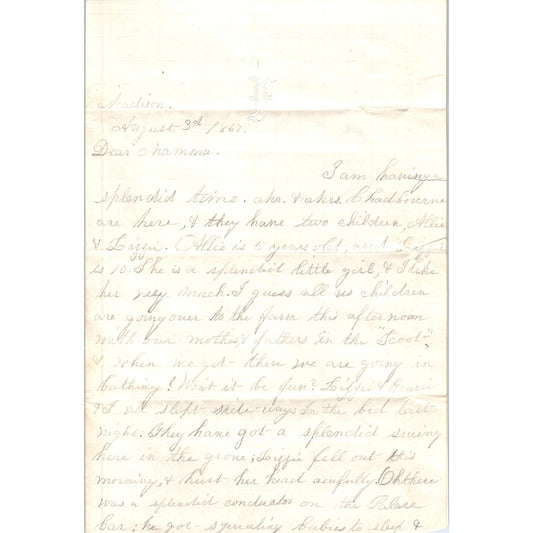 Madison.
August 3rd 1867.
Dear Mamma.
I am having a
splendid time. Mr. & Mrs. Chadbourne
are here, & they have two children, Allie
& Lizzie. Allie is 5 years old, and Lizzie
is 10. She is a splendid little girl, & I like
her very much. I guess all us children
are going over to the farm this afternoon
with our mothers & fathers in the "Scoot",
& when we get there we are going in
bathing! Won't it be fun? Lizzie &
& I all slept side-ways in the bed last
night. They have got a splendid swing
here in the grove; Lizzie fell out this
morning, & hurt her head awfully. Oh there
was a splendid conductor on the Palace
Car; he got squealing babies to sleep &